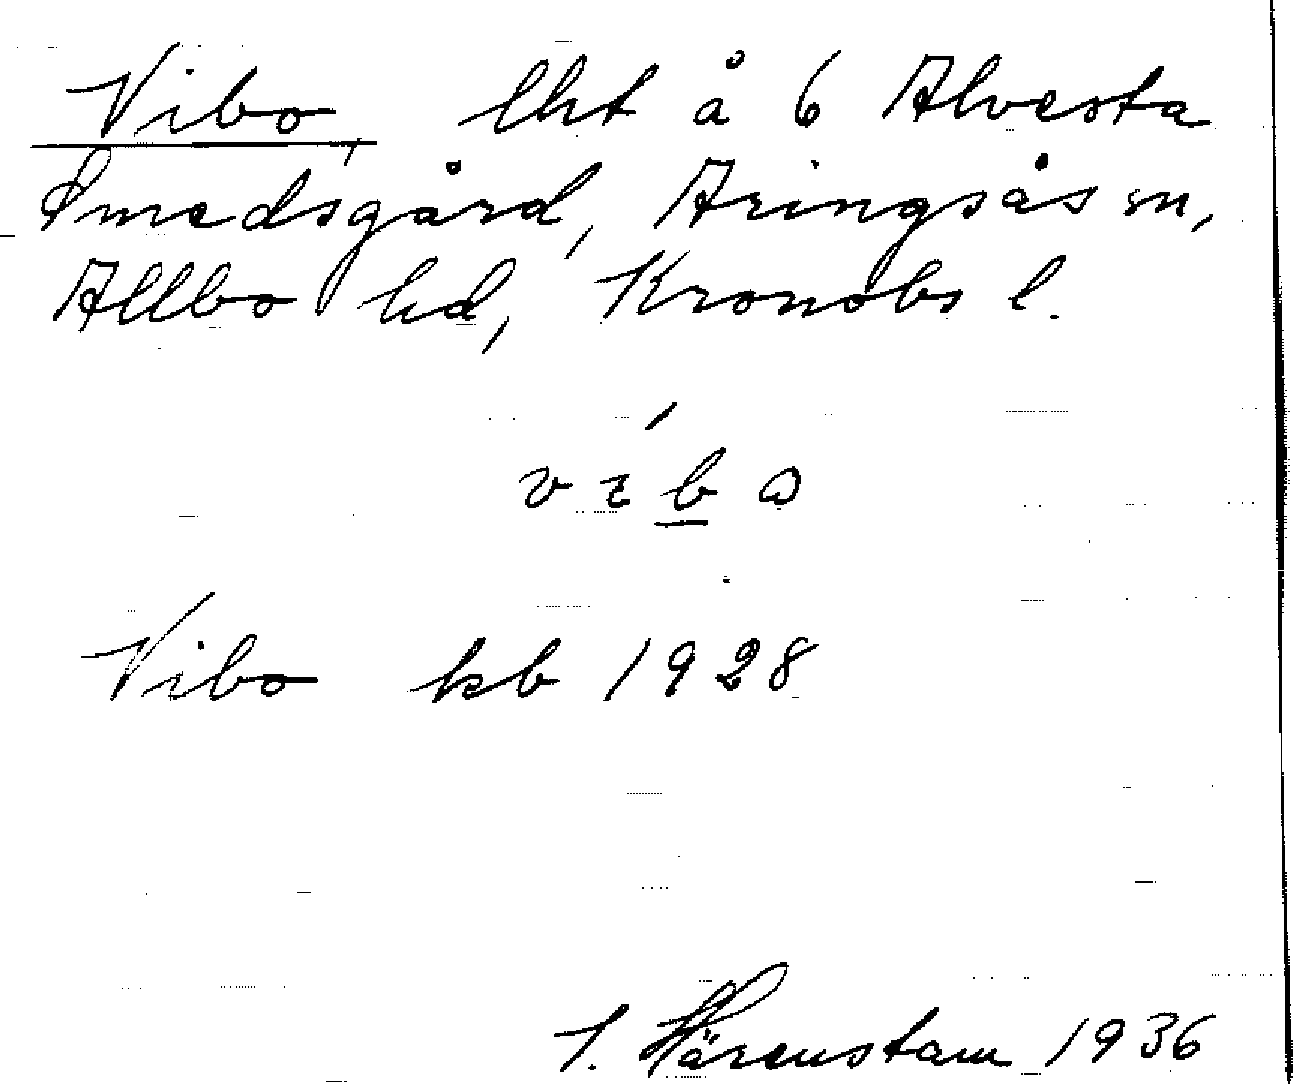 Vibo, lht å 6 Alvesta
Smedsgård, Aringsås sn,
Allbo hd, Kronobs l.
víbo
Vibo kb 1928
I. Härenstam 1936